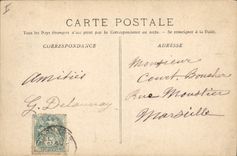 CARTE POSTALE
Tous les Pays étrangers n'acceptent pas la Correspondance au recto. — Se renseigner à la Poste.
CORRESPONDANCE
ADRESSE
Amitiés
G. Delaunay
Monsieur
Court Boucher
Rue Moustier
Marseille